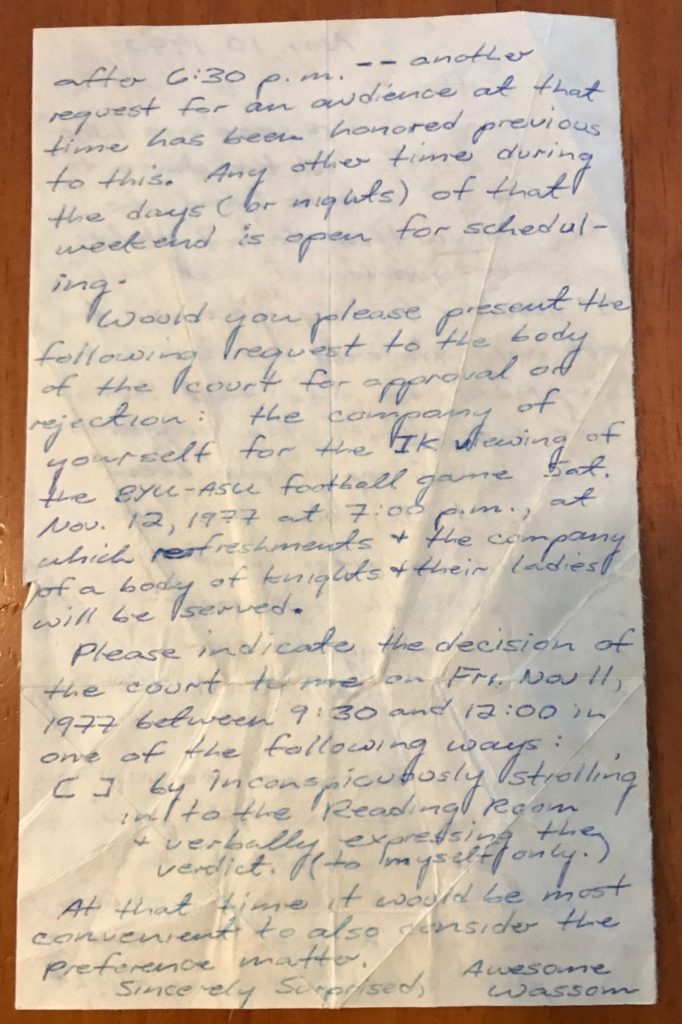 after 6:30 p.m. -- another
request for an audience at that
time has been honored previous
to this. Any other time during
the days (or nights) of that
weekend is open for schedul-
ing.
Would you please present the
following request to the body
of the court for approval or
rejection: the company of
yourself for the IK viewing of
the BYU-ASU football game Sat.
Nov. 12, 1977 at 7:00 p.m., at
which refreshments + the company
of a body of knights + their ladies
will be served.
Please indicate the decision of
the court to me on Fri. Nov 11,
1977 between 9:30 and 12:00 in
one of the following ways:
[ ] by inconspicuously strolling
in to the Reading Room
+ verbally expressing the
verdict. (to myself only.)
At that time it would be most
convenient to also consider the
preference matter.
Sincerely Surprised, Awesome
Wassom